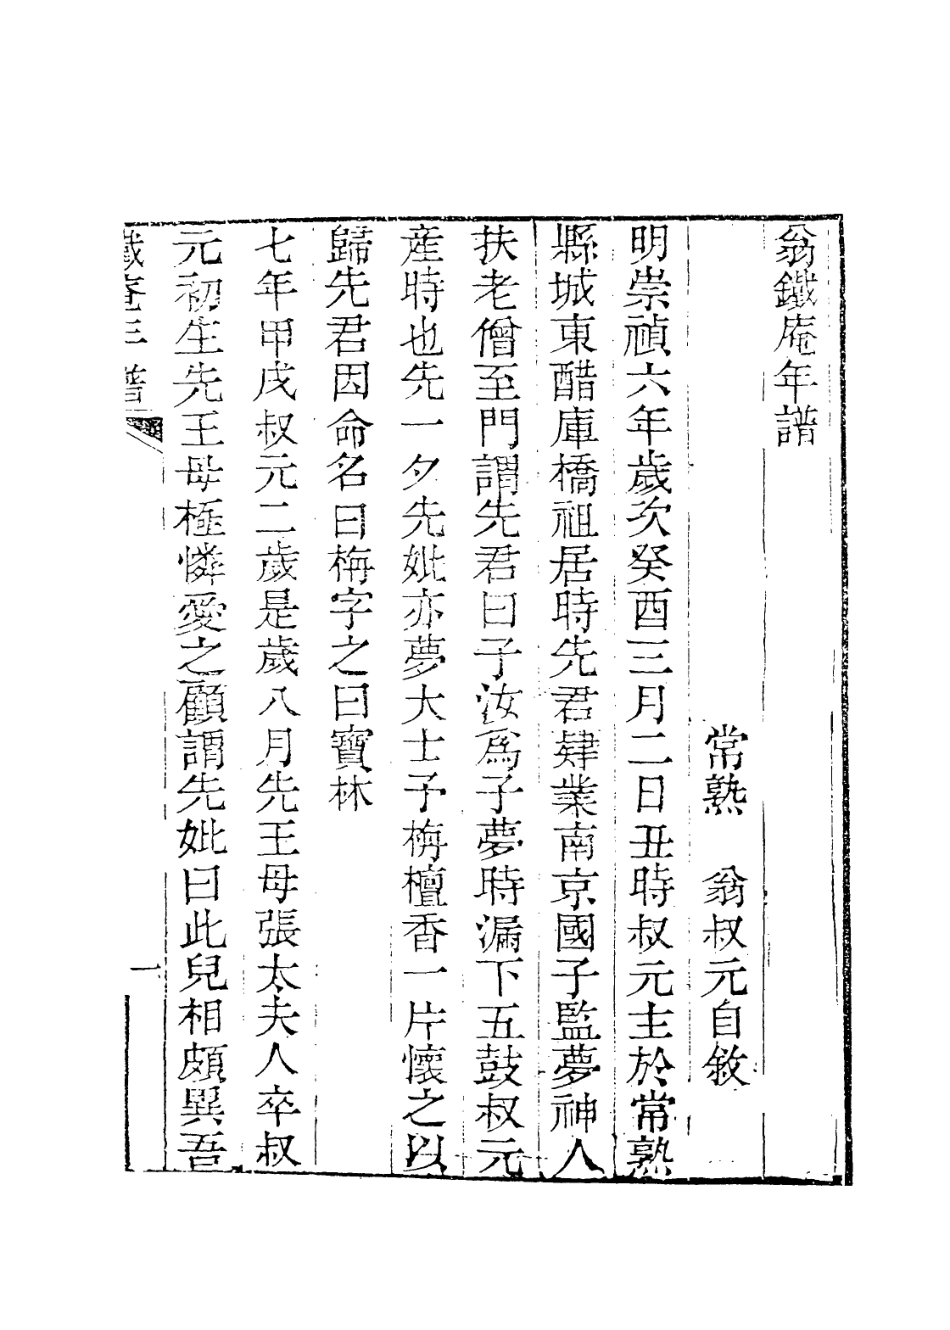 翁鐵庵年譜
常熟　翁叔元自敘
明崇禎六年歲次癸酉三月二日丑時叔元主於常熟
縣城東醋庫橋祖居時先君肄業南京國子監夢神人
扶老僧至門謂先君曰子汝爲子夢時漏下五鼓叔元
產時也先一夕先妣亦夢大士予栴檀香一片懷之以
歸先君因命名曰栴字之曰寶林
七年甲戌叔元二歲是歲八月先王母張太夫人卒叔
元初生先王母極憐愛之顧謂先妣曰此兒相頗異吾
鐵庵年譜
一